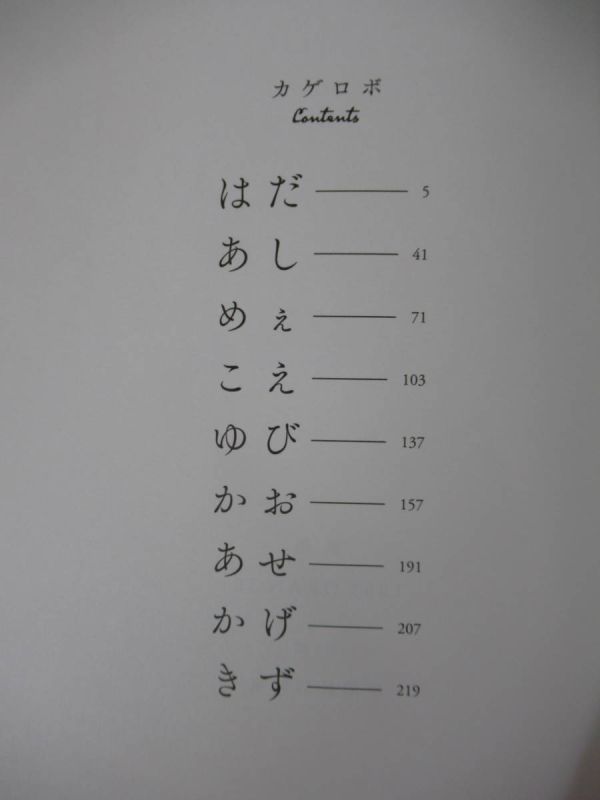 カゲロボ
Contents
はだ 5
あし 41
めぇ 71
こえ 103
ゆび 137
かお 157
あせ 191
かげ 207
きず 219